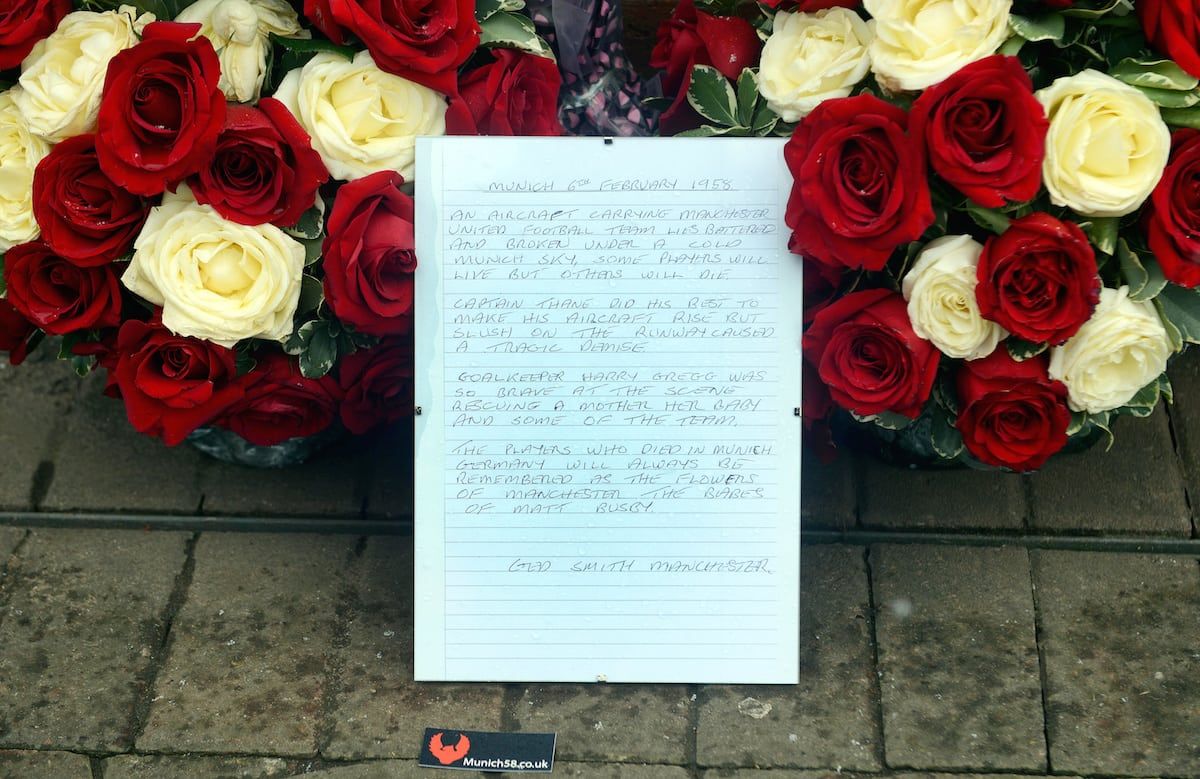 MUNICH 6TH FEBRUARY 1958
AN AIRCRAFT CARRYING MANCHESTER
UNITED FOOTBALL TEAM LIES BATTERED
AND BROKEN UNDER A COLD
MUNICH SKY, SOME PLAYERS WILL
LIVE BUT OTHERS WILL DIE
CAPTAIN THANE DID HIS BEST TO
MAKE HIS AIRCRAFT RISE BUT
SLUSH ON THE RUNWAY CAUSED
A TRAGIC DEMISE
GOALKEEPER HARRY GREGG WAS
SO BRAVE AT THE SCENE
RESCUING A MOTHER HER BABY
AND SOME OF THE TEAM.
THE PLAYERS WHO DIED IN MUNICH
GERMANY WILL ALWAYS BE
REMEMBERED AS THE FLOWERS
OF MANCHESTER THE BABES
OF MATT BUSBY
GED SMITH MANCHESTER.
Munich58.co.uk